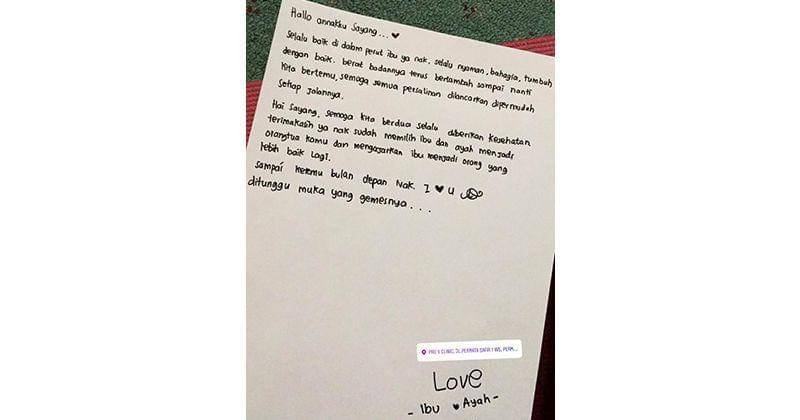 Hallo annakku sayang... ♥
Selalu baik di dalam perut ibu ya nak. selalu nyaman, bahagia, tumbuh
dengan baik. berat badannya terus bertambah sampai nanti
kita bertemu, semoga semua persalinan dilancarkan dipermudah
setiap jalannya.
Hai sayang, semoga kita berdua selalu diberikan kesehatan
terimakasih ya nak sudah memilih ibu dan ayah menjadi
orangtua kamu dan mengajarkan ibu menjadi orang yang
lebih baik lagi.
sampai ketemu bulan depan nak. I ♥ U
ditunggu muka yang gemesnya...
CLINIC, JL.PERMATA SAFIR 1 W5, PERM...
Love
- Ibu ♥ Ayah -